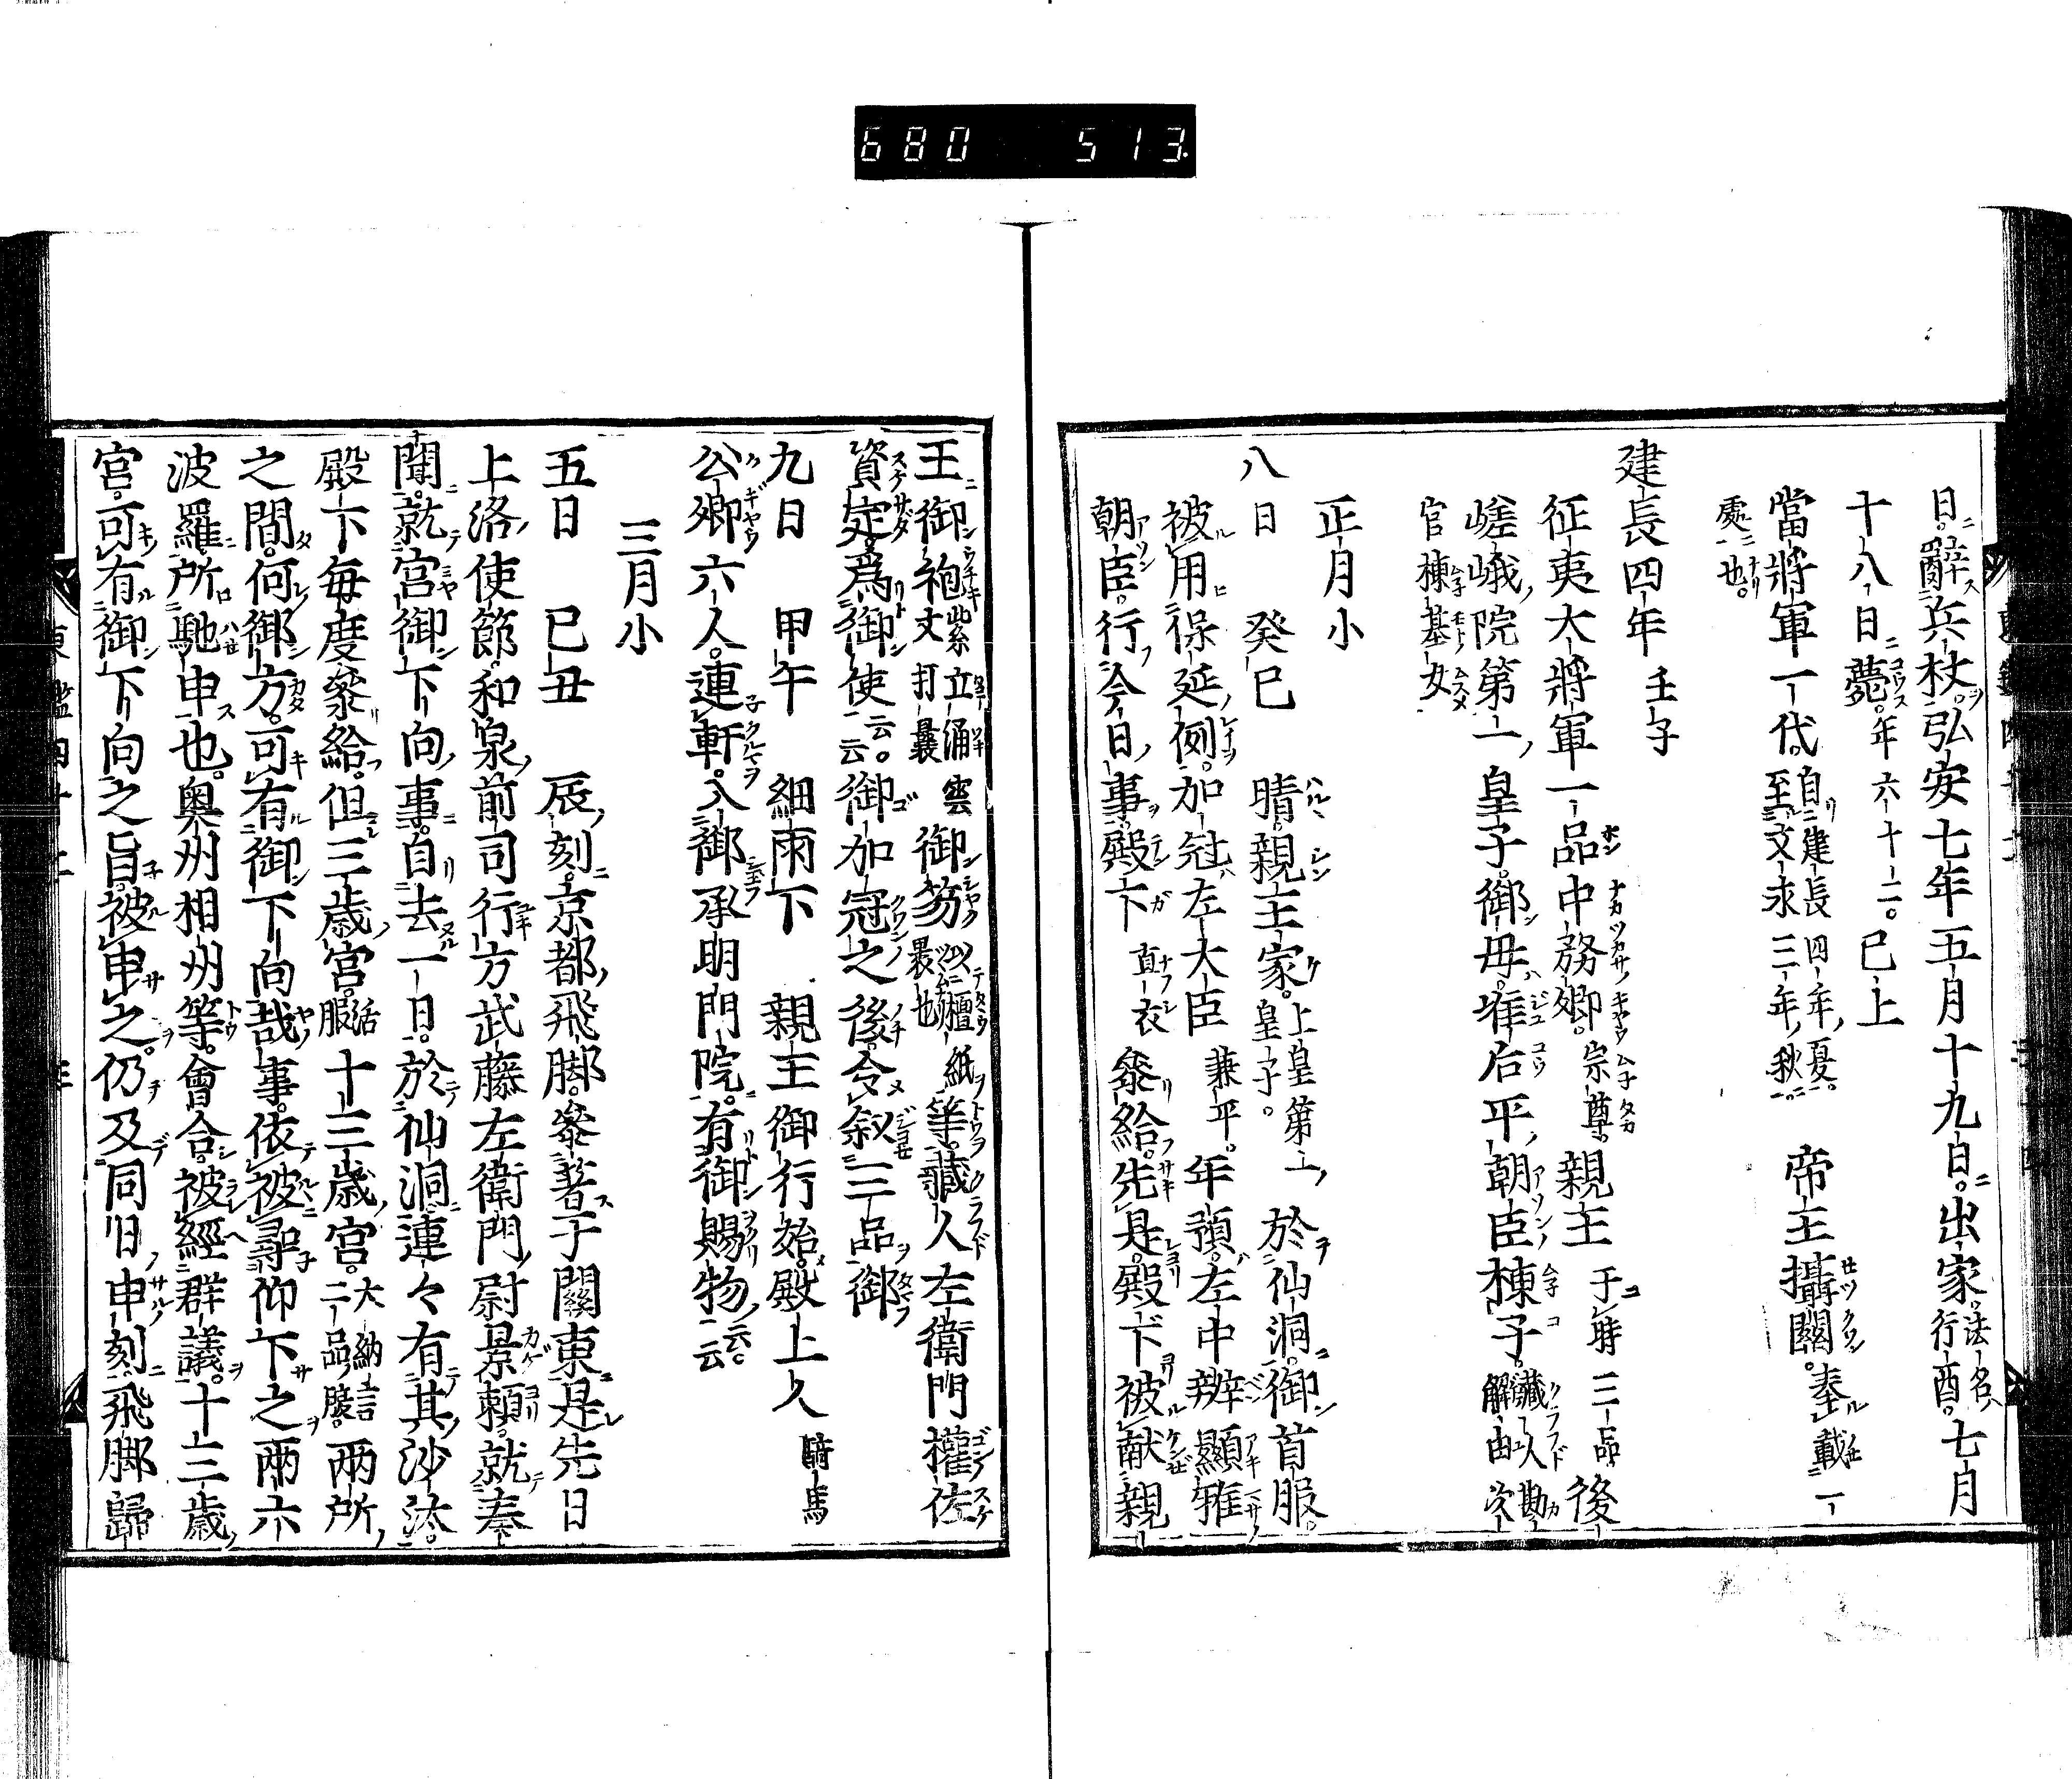 680 513
日辭兵杖弘安七年五月十九日出家法名行酉七月
十八日薨年六十二已上
當將軍一代自建長四年夏至文永三年秋 帝王攝關奉載一
處也
建長四年 壬子
征夷大將軍一品中務卿宗尊親王于時三品後
嵯峨院第一皇子御母准后平朝臣棟子藏人勘解由次
官棟基女
正月小
八日 癸巳 晴親王家上皇第一皇子於仙洞御首服
被用保延例加冠左大臣兼平年預左中辨顯雅
朝臣行今日事殿下直衣參給先是殿下被献親
王御袍文紫立涌雲打裏御笏以檀紙裹也等藏人左衛門權佐
資定爲御使云云御加冠之後令叙三品御
九日 甲午 細雨下 親王御行始殿上人騎馬
公卿六人連軒入御承明門院有御賜物云云
三月小
五日 己丑 辰刻京都飛脚參著于關東是先日
上洛使節和泉前司行方武藤左衛門尉景頼就奏
聞就宮御下向事自去一日於仙洞連々有其沙汰
殿下毎度參給但三歳宮 十三歳宮大納言二品腹兩所
之間何御方可有御下向哉事依被尋仰下之兩六
波羅所馳申也奥州相州等會合被經群議十三歳
宮可有御下向之旨被申之仍及同日申刻飛脚歸